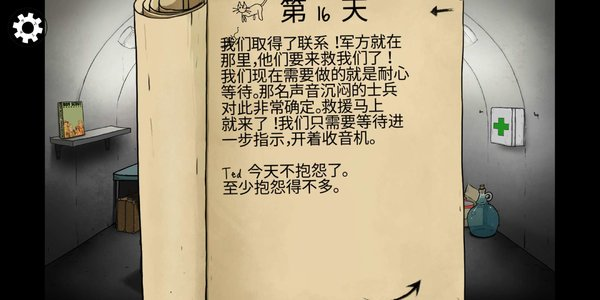 第 16 天
我们取得了联系！军方就在
那里,他们要来救我们了！
我们现在需要做的就是耐心
等待。那名声音沉闷的士兵
对此非常确定。救援马上
就来了！我们只需要等待进
一步指示,开着收音机。
Ted 今天不抱怨了。
至少抱怨得不多。